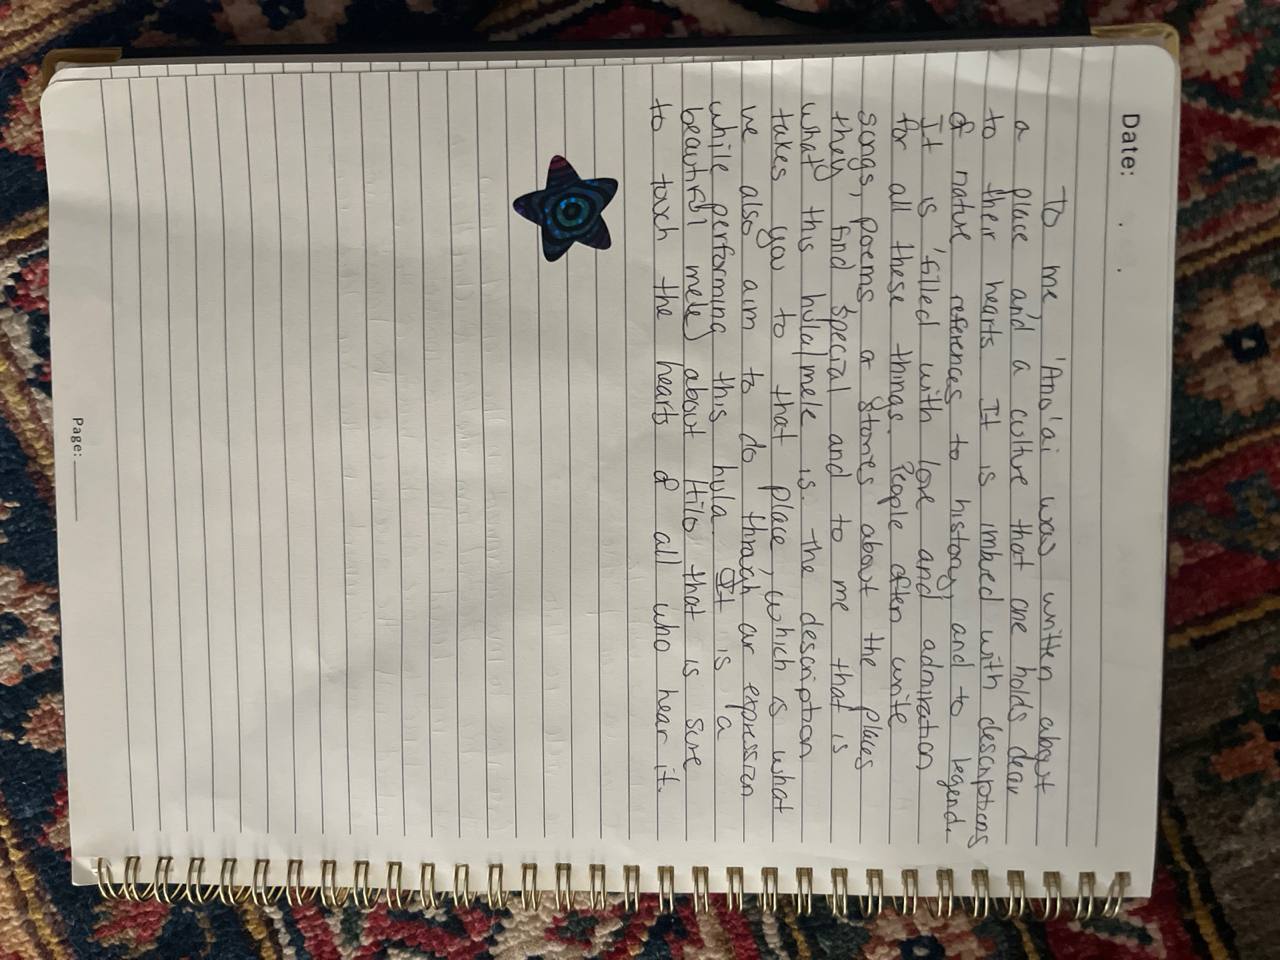 Date:
To me, 'Ano'ai was written about
a place and a culture that one holds dear
to their hearts. It is imbued with descriptions
of nature, references to history, and to legend.
It is filled with love and admiration
for all these things. People often write
songs, poems or stories about the places
they find special and to me that is
what this hula/mele is. the description
takes you to that place, which is what
we also aim to do through our expression
while performing this hula. It is a
beautiful mele) about Hilo that is sure
to touch the hearts of all who hear it.
Page: